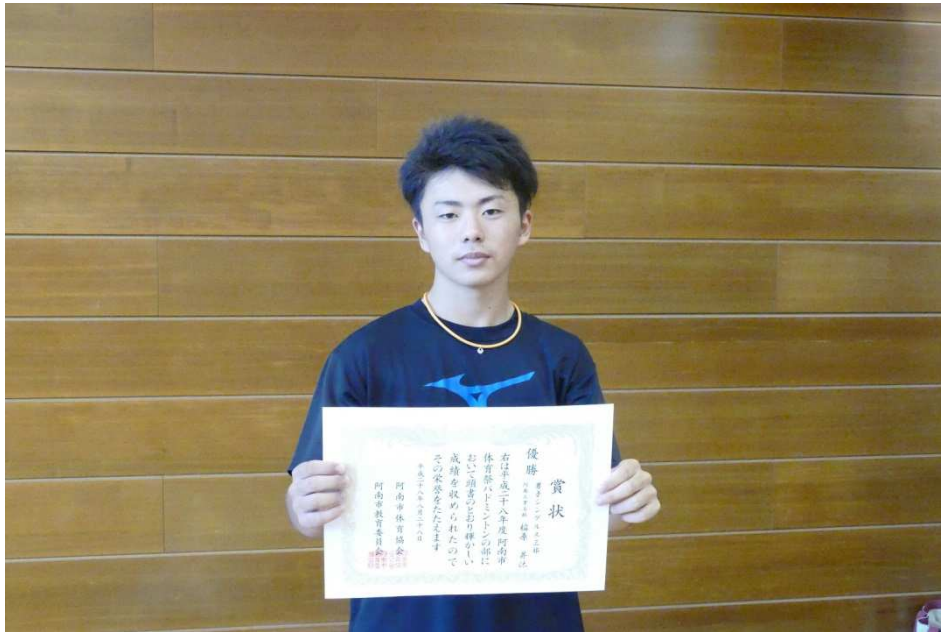 賞状
優勝
男子シングルス三部
右は平成二十八年度阿南市
体育祭バドミントンの部に
おいて頭書のとおり輝かしい
成績を収められたので
その栄誉をたたえます
平成二十八年八月二十八日
阿南市体育協会
阿南市教育委員会